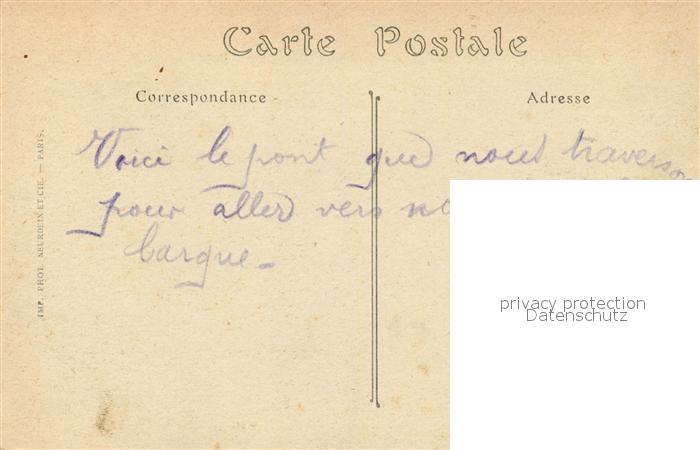 Carte Postale
Correspondance
Adresse
Voici le pont que nous traverso
pour aller vers no
barque_
IMP. PHOT. NEURDEIN ET CIE. — PARIS.
privacy protection
Datenschutz